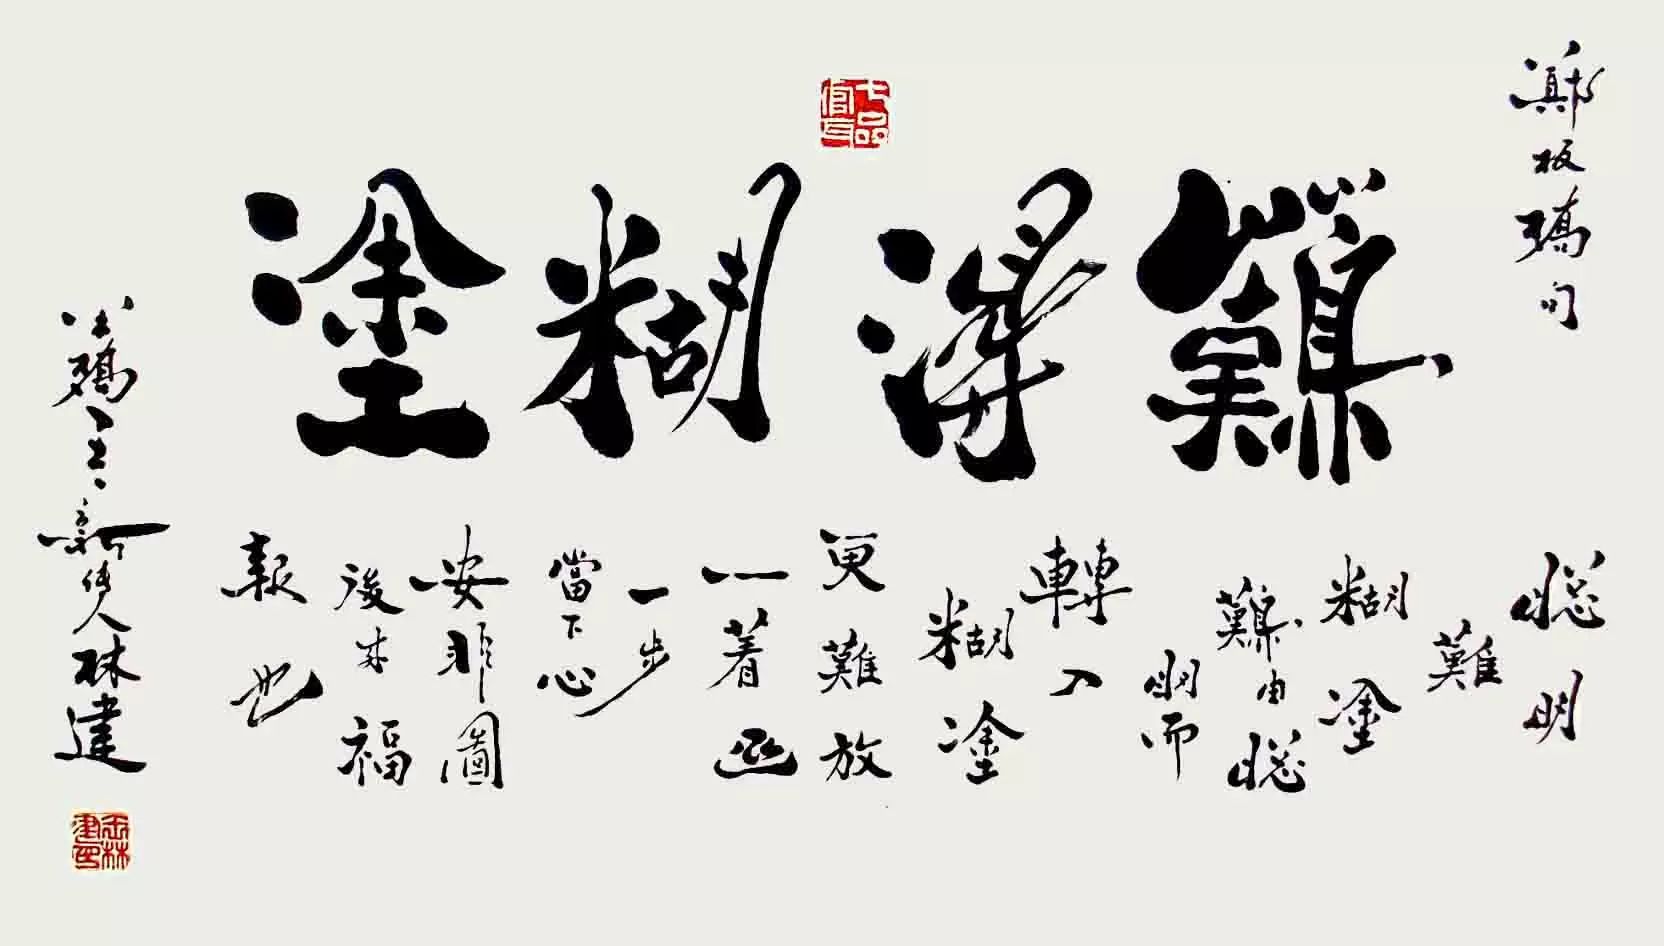 鄭板橋句
難得糊塗
七品官耳
聰明
難
糊塗
難由聰
明而
轉入
糊塗
更難放
一着退
一步
當下心
安非圖
後來福
報也
橋 新傳人林建